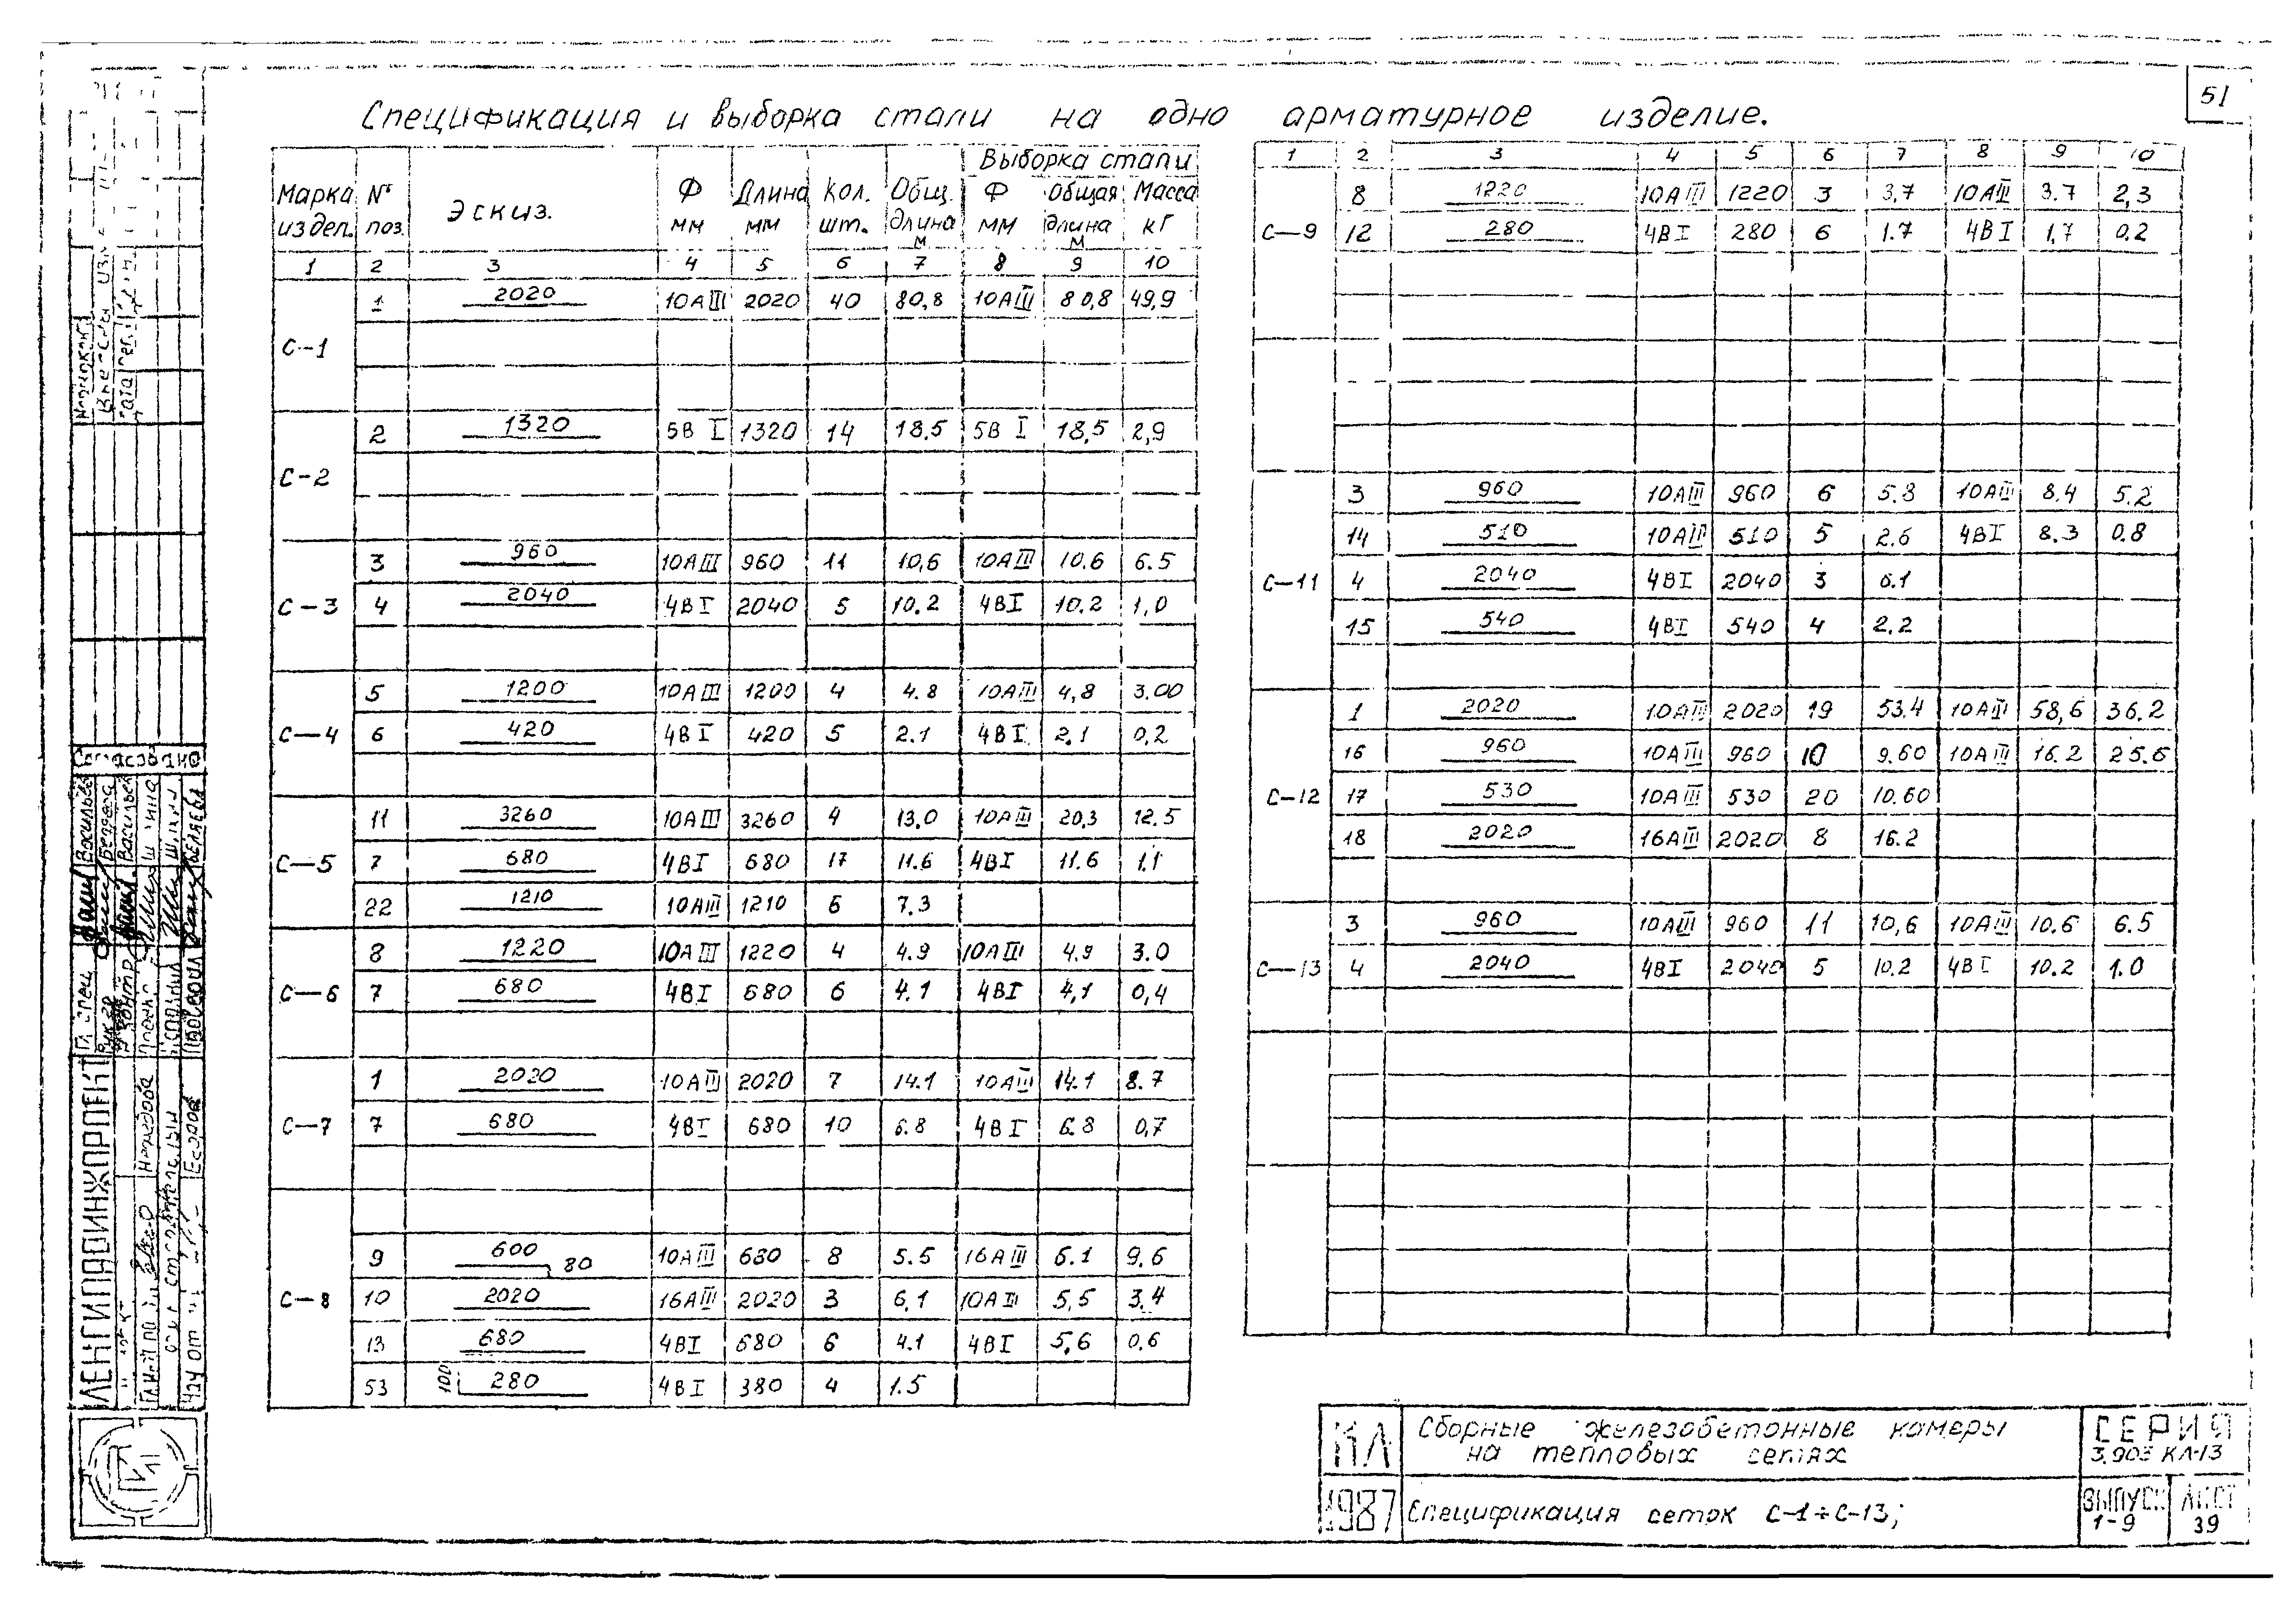 51
Спецификация и выборка стали на одно арматурное изделие.
Марка издел. | № поз. | Эскиз. | Ф мм | Длина мм | Кол. шт. | Общ. длина м | Выборка стали | Ф мм | Общая длина м | Масса кг
1 2 3 4 5 6 7 8 9 10
С-1
1 2020 10АIII 2020 40 80,8 10АIII 80,8 49,9
С-2
2 1320 5В I 1320 14 18.5 5В I 18,5 2,9
С-3
3 960 10АIII 960 11 10,6 10АIII 10.6 6.5
4 2040 4В I 2040 5 10.2 4ВI 10.2 1,0
С-4
5 1200 10АIII 1200 4 4.8 10АIII 4,8 3.00
6 420 4В I 420 5 2.1 4В I 2.1 0,2
С-5
11 3260 10АIII 3260 4 13,0 10АIII 20,3 12.5
7 680 4ВI 680 17 11.6 4ВI 11.6 1.1
22 1210 10АIII 1210 6 7.3
С-6
8 1220 10АIII 1220 4 4.9 10АIII 4,9 3.0
7 680 4ВI 680 6 4.1 4ВI 4,1 0,4
С-7
1 2020 10АIII 2020 7 14.1 10АIII 14.1 8.7
7 680 4ВI 680 10 6.8 4В I 6.8 0,7
С-8
9 600 80 10АIII 680 8 5.5 16АIII 6.1 9.6
10 2020 16АIII 2020 3 6,1 10АIII 5,5 3,4
13 680 4ВI 680 6 4.1 4ВI 5,6 0.6
53 100 280 4В I 380 4 1.5
1 2 3 4 5 6 7 8 9 10
С-9
8 1220 10АIII 1220 3 3,7 10АIII 3.7 2,3
12 280 4ВI 280 6 1.7 4ВI 1,7 0.2
С-11
3 960 10АIII 960 6 5.8 10АIII 8,4 5.2
14 510 10АIII 510 5 2.6 4ВI 8.3 0.8
4 2040 4ВI 2040 3 6.1
15 540 4ВI 540 4 2.2
С-12
1 2020 10АIII 2020 19 53.4 10АIII 58,6 36.2
16 960 10АIII 960 10 9.60 10АIII 16.2 25.6
17 530 10АIII 530 20 10.60
18 2020 16АIII 2020 8 16.2
С-13
3 960 10АIII 960 11 10,6 10АIII 10.6 6.5
4 2040 4ВI 2040 5 10.2 4ВI 10.2 1.0
КЛ
1987
Сборные железобетонные камеры
на тепловых сетях
Спецификация сеток С-1÷С-13;
СЕРИЯ
3.903 КЛ-13
ВЫПУСК
1-9
ЛИСТ
39
Согласовано
ЛЕНГИПРОИНЖПРОЕКТ
Гл. спец.
Васильев
Проверил
Беляева